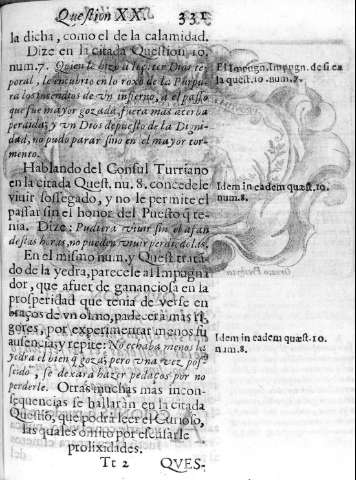 Question XX. 331
la dicha, como el de la calamidad.
Dize en la citada Question 10.
num. 7. Quien le hizo a Iupiter Dios te
poral, le encubrio en lo roxo de la Purpu
ra los incendios de vn infierno, a el passo
que fue mayor gozada, fuera mas acerba
perdida; y vn Dios depuesto de la Digni
dad, no pudo parar sino en el mayor tor-
mento.
El Impugn. Impugn. de si en
la quest. 10. num. 7.
Hablando del Consul Turriano
en la citada Quest. nu. 8. concedele
viuir sossegado, y no le permite el
passar sin el honor del Puesto q̃ te-
nia. Dize: Pudierà viuir sin el afan
destas horas, no pueden viuir perdidolas.
Idem in eadem quæst. 10.
num. 8.
En el mismo num. y Quest. tratã
do de la yedra, parecele al Impugna
dor, que afuer de gananciosa en la
prosperidad que tenia de verse en
braços de vn olmo, padecerà mas ri
gores, por experimentar menos su
ausencia, y repite: No echaba menos la
yedra el bien q̃ goza; pero vna vez pos-
seido, se dexarà hazer pedaços por no
perderle. Otras muchas mas incon-
sequencias se hallaràn en la citada
Questiõ, que podrà leer el Curioso,
las quales omito por escusarle
prolixidades.
Idem in eadem quæst. 10.
num. 8.
Tt 2 QVES-